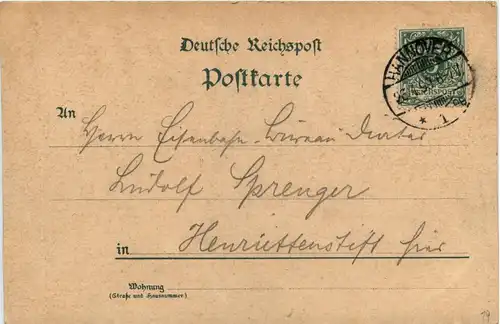 Deutsche Reichspost
Postkarte
HANNOVER
REICHSPOST
* 1
An
Herrn Eisenbahn-Bureau
Ludolf Sprenger
in Henriettenstift hier
Wohnung
(Straße und Hausnummer)